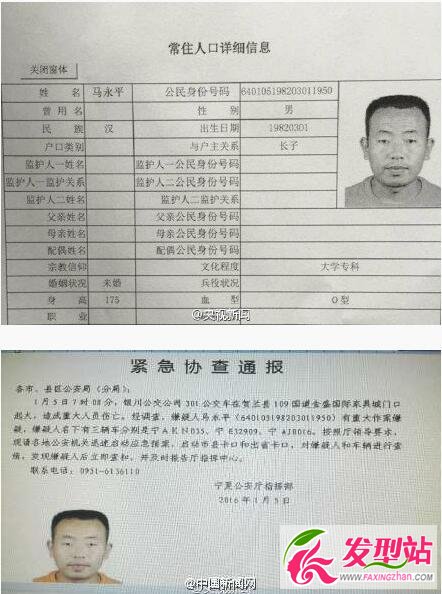 常住人口详细信息
关闭窗体
姓 名 马永平 公民身份号码 640105198203011950
曾 用 名 性 别 男
民 族 汉 出生日期 19820301
户口类别 与户主关系 长子
监护人一姓名 监护人一公民身份号码
监护人一监护关系 监护人二公民身份号码
监护人二姓名 监护人二监护关系
父亲姓名 父亲公民身份号码
母亲姓名 母亲公民身份号码
配偶姓名 配偶公民身份号码
宗教信仰 文化程度 大学专科
婚姻状况 未婚 兵役状况
身 高 175 血 型 O型
职 业
@央视新闻
紧急协查通报
各市、县区公安局(分局):
1月5日7时08分,银川公交公司301公交车在贺兰县109国道金盛国际家具城门口
起火,造成重大人员伤亡。经调查,嫌疑人马永平(640103198203011950)有重大作案嫌
疑,嫌疑人名下有三辆车分别是宁AKN035、宁E32909、宁AJ0016。按照厅领导要求,
现请各地公安机关迅速启动应急预案,启动市县卡口和出省卡口,对嫌疑人和车辆进行查
缉,发现嫌疑人后立即查扣,并及时报告厅指挥中心。
联系电话:0951-6136110
宁夏公安厅指挥部
2016年1月5日
@中国新闻网
发型站
WWW.FAXINGZHAN.COM